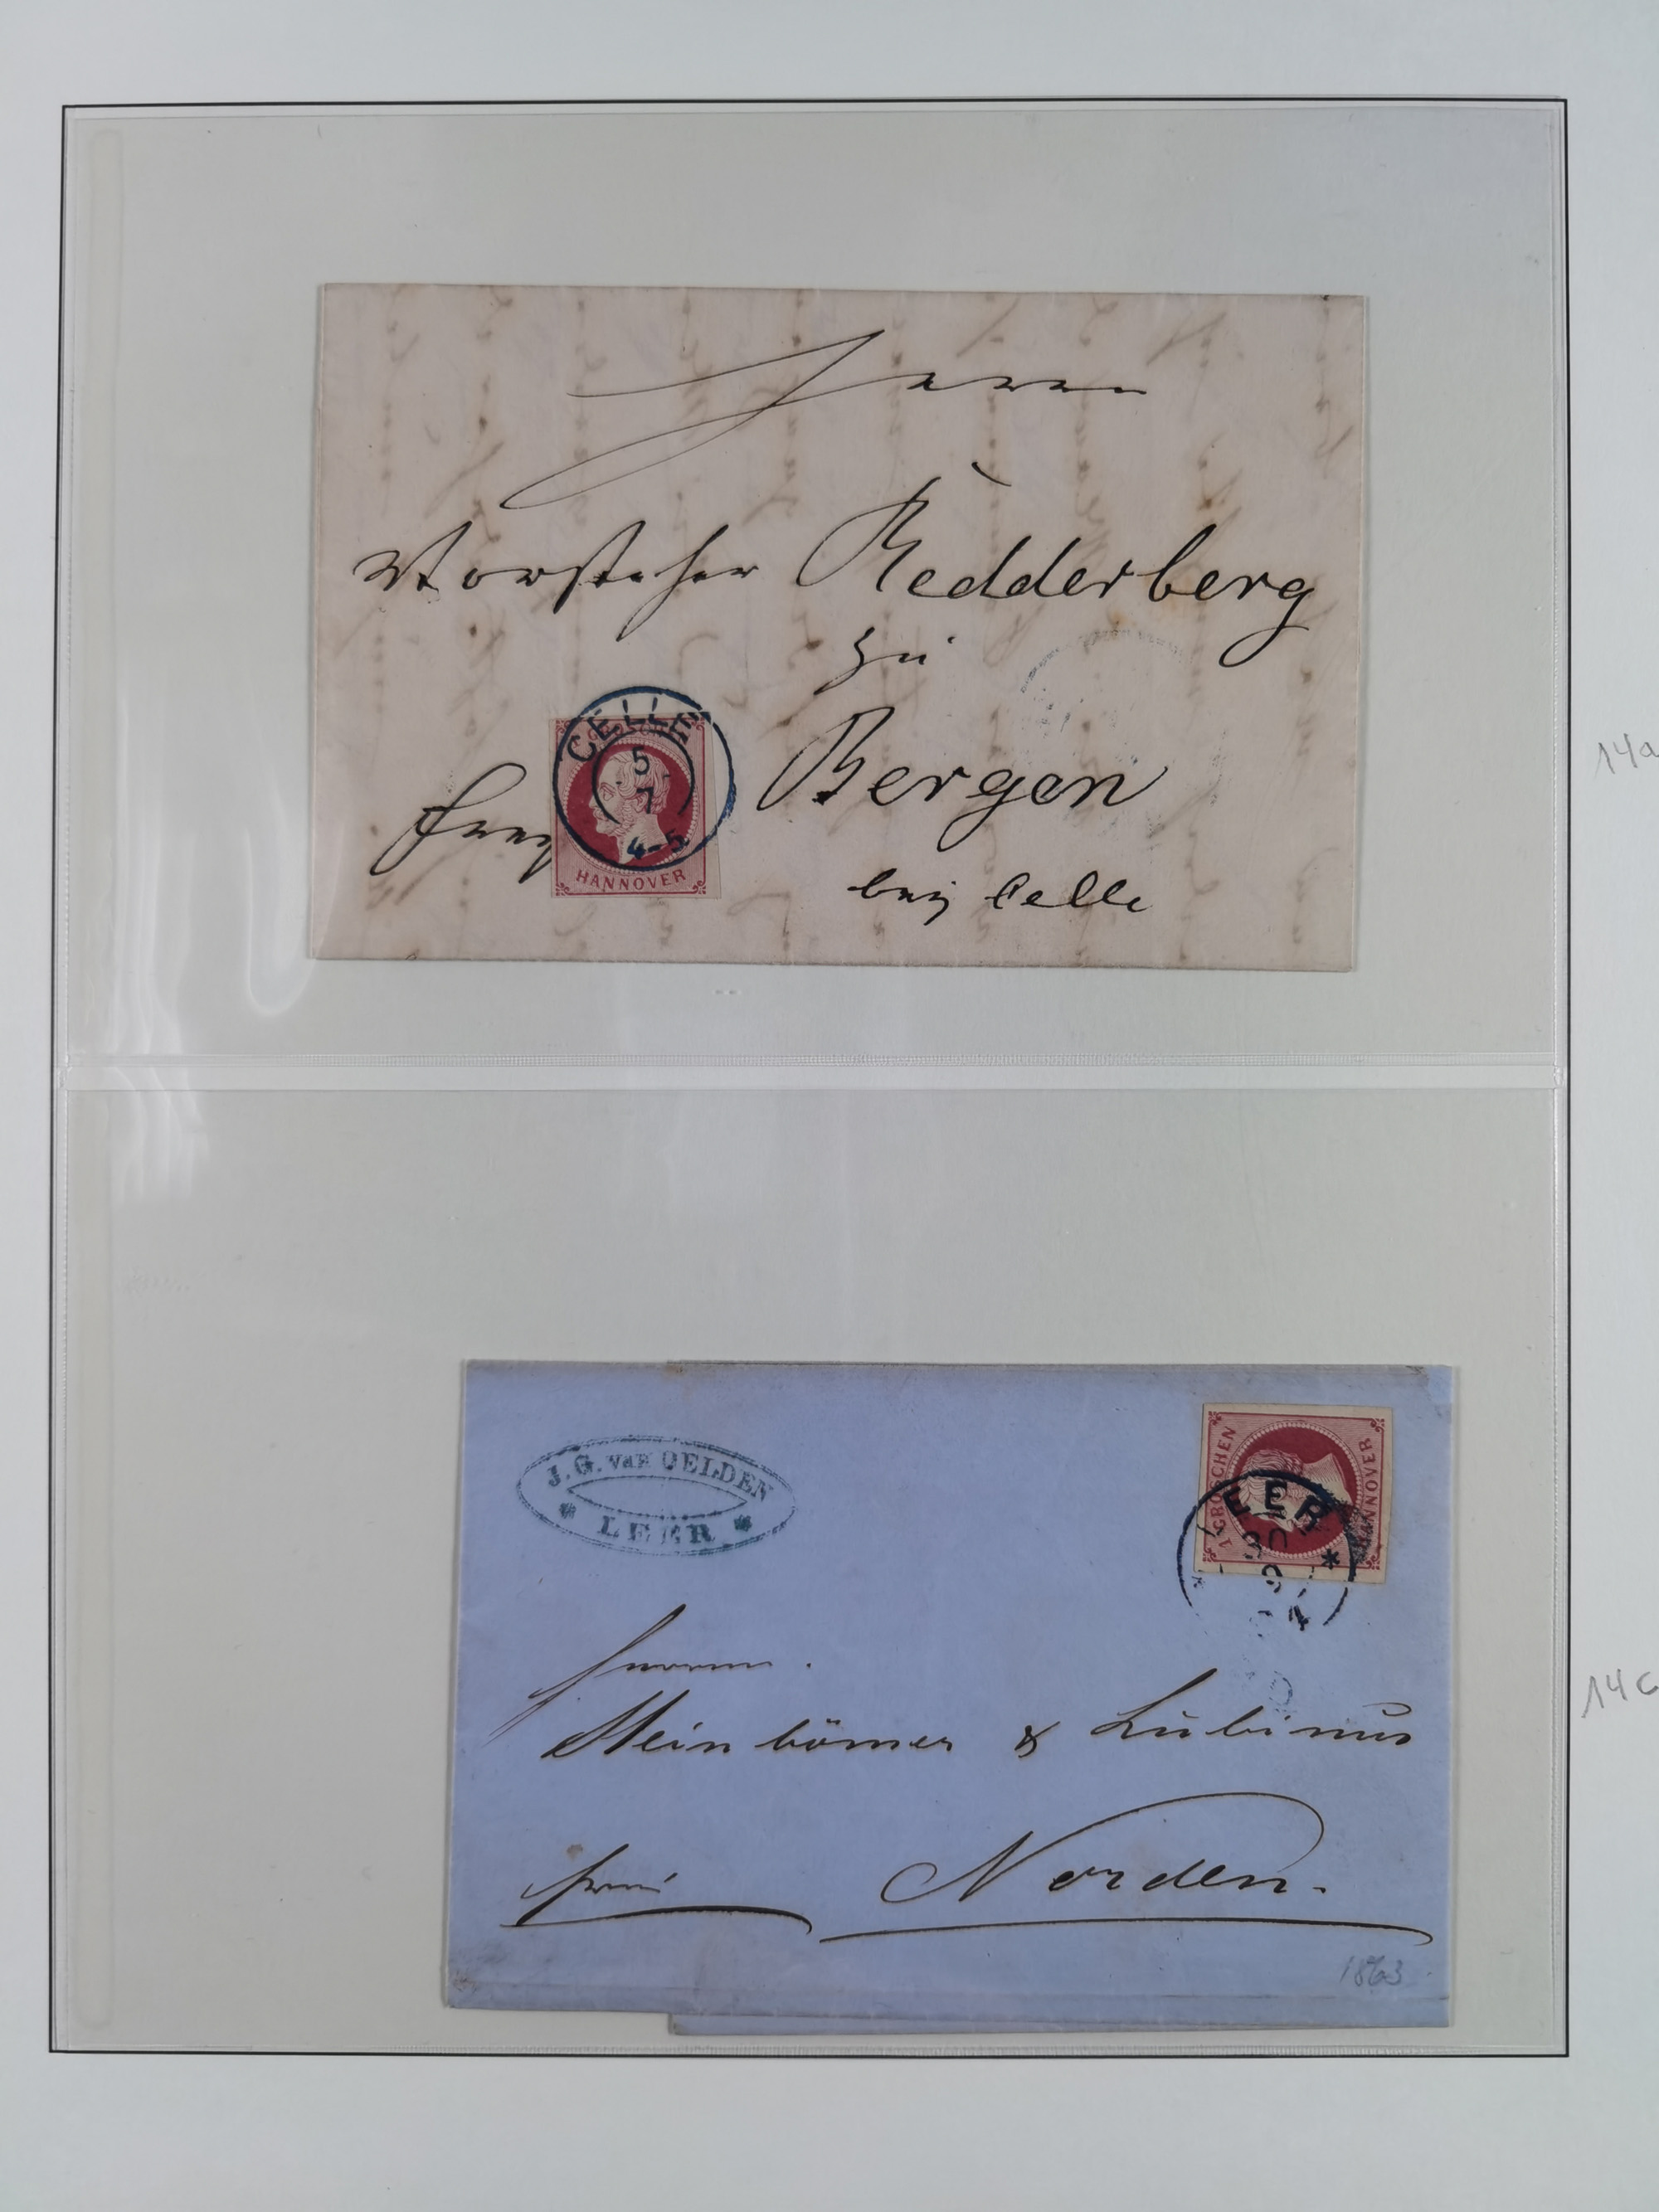 Herrn
Vorsteher Redderberg
zu
Bergen
bei Celle
CELLE
5
7
4-5
HANNOVER
14a
J. G. van OELDEN
LEER
1 GROSCHEN
HANNOVER
LEER
30
9
4
Herren
Steinbömer & Lubinus
frei
Norden.
1863
14c